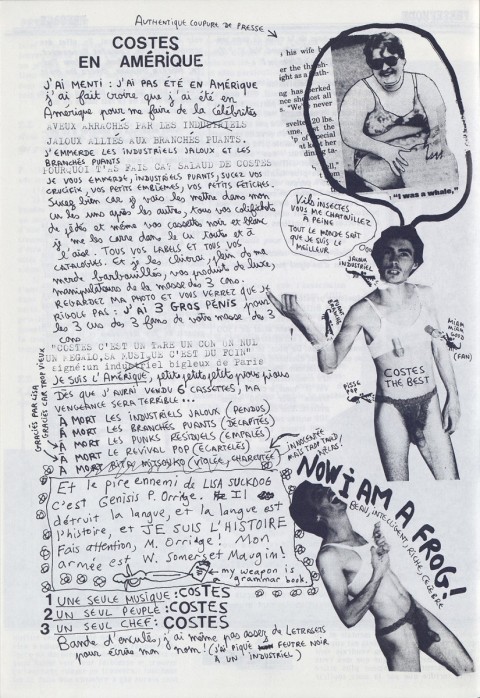 AUTHENTIQUE COUPURE DE PRESSE
COSTES
EN AMÉRIQUE
J'AI MENTI : J'AI PAS ÉTÉ EN AMÉRIQUE
j'ai fait croire que j'ai été en
Amérique pour me faire de la célébrités
AVEUX ARRACHÉS PAR LES INDUSTRIELS
JALOUX ALLIÉS AUX BRANCHÉS PUANTS.
J'EMMERDE LES INDUSTRIELS JALOUX ET LES
BRANCHÉS PUANTS
POURQUOI T'AS FAIS CA? SALAUD DE COSTES
JE VOUS EMMERDE, INDUSTRIELS PUANTS, SUCEZ VOS
CRUCIFIX, VOS PETITS EMBLÈMES, VOS PETITS FÉTICHES.
Sucez bien car je vais les mettre dans mon
cu les uns après les autres, tous vos
de fétés et même vos cassettes noir et blanc
je me les carre dans le cu toute et à
l'aise. TOUS VOS LABELS ET TOUS VOS
CATALOGUES. Et je les chierai, plein de ma
merde barbouillés, vos produits de luxe,
manipulateurs de la masse des 3 cons.
REGARDEZ MA PHOTO ET VOUS VERREZ QUE JE
RIGOLE PAS : J'AI 3 GROS PÉNIS pour
les 3 cus des 3 fans de votre masse des 3
cons
"COSTES C'EST UN TARE UN CON UN NUL
UN MEGALO, SA MUSIQUE C'EST DU FOIN"
signé:un industriel bigleux de Paris
JE SUIS L'AMÉRIQUE, petits, petits, petits pious pious
Dès que j'aurai vendu 6 cassettes, MA
VENGEANCE SERA TERRIBLE...
À MORT LES INDUSTRIELS JALOUX (PENDUS)
À MORT LES BRANCHÉS PUANTS (DÉCAPITÉS)
À MORT LES PUNKS RÉSIDUELS (EMPALÉS)
À MORT LE REVIVAL POP (ÉCARTELÉS)
À MORT RITA MITSOUKO (VIOLÉE, CHARCUTÉE)
GRACIÉS PAR LISA
GRACIÉS CAR TROP VIEUX
INNOCENTÉE
MAIS TROP TARD
HÉLAS!
Et le pire ennemi de LISA SUCKDOG
c'est Genisis P. Orrige. Il
détruit la langue, et la langue est
l'histoire, et JE SUIS L'HISTOIRE
Fais attention, M. Orrige! Mon
armée est W. Somerset Maugim!
my weapon is
grammar book.
1 UNE SEULE MUSIQUE : COSTES
2 UN SEUL PEUPLE : COSTES
3 UN SEUL CHEF : COSTES
Bande d'enculés, j'ai même pas assez de LETRASETS
pour écrire mon nom! (J'AI PIQUÉ MON FEUTRE NOIR
À UN INDUSTRIEL)
his wife
"We'll never
svelte 120 lbs.
"I was a whale."
Vils INSECTES
VOUS ME CHATOUILLEZ
À PEINE
TOUT LE MONDE SAIT
QUE JE SUIS LE
MEILLEUR
JALOUX
INDUSTRIEL
MIAM
MIAM
GOOD
(FAN)
COSTES
THE BEST
PISSE
POP
NOW I AM A FROG!
BEAU, INTELLIGENT, RICHE, CÉLÈBRE